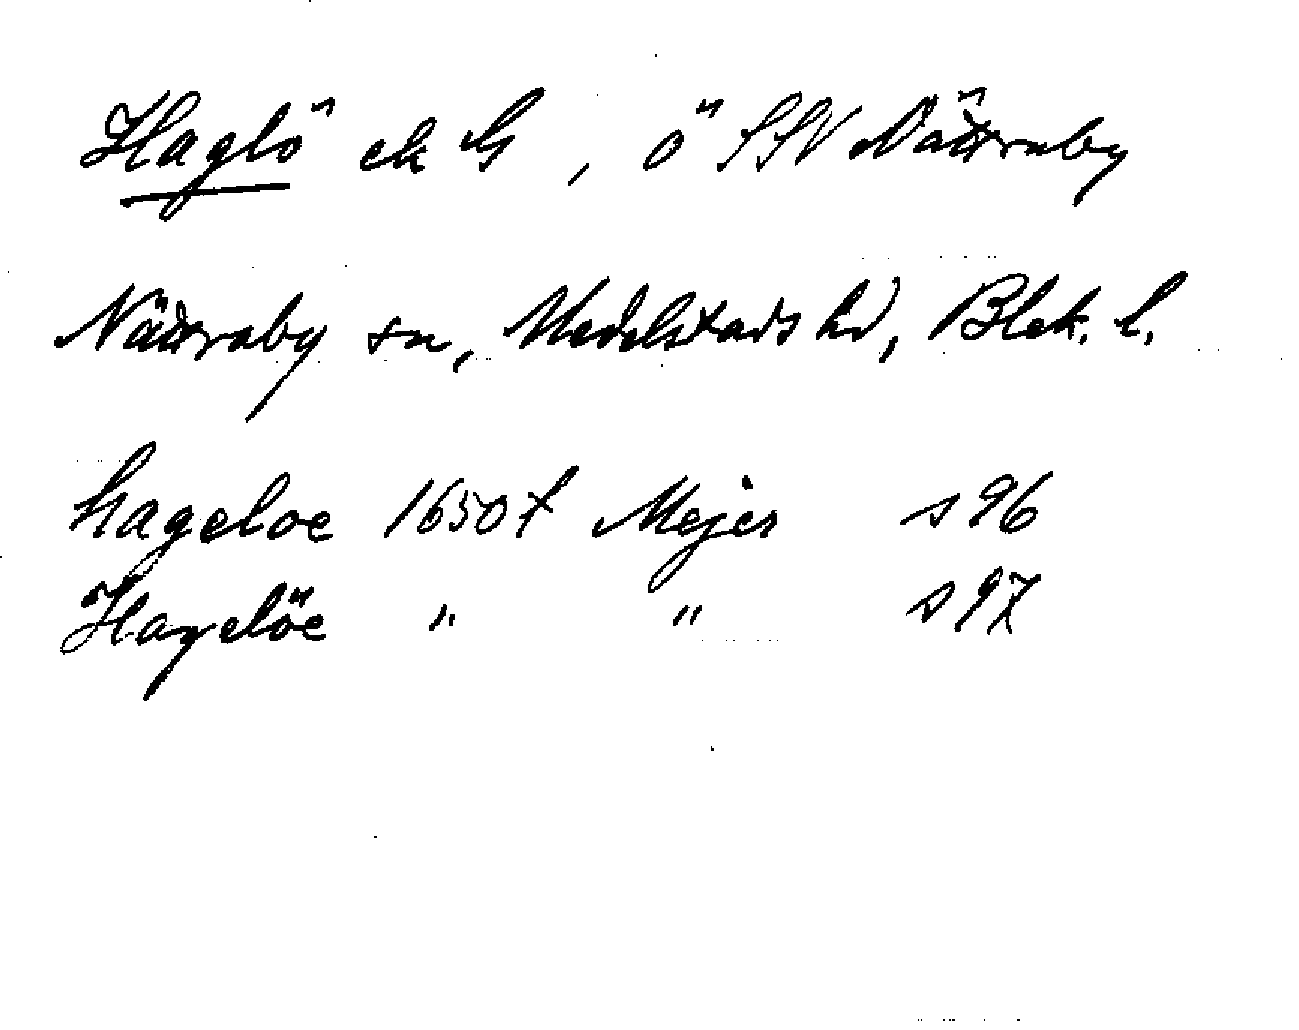 Haglö ek G, ö SSV Nättraby
Nättraby sn, Medelstads hd, Blek. l.
hageloe 1650 f Mejer s 96
Hagelöe " " s 97